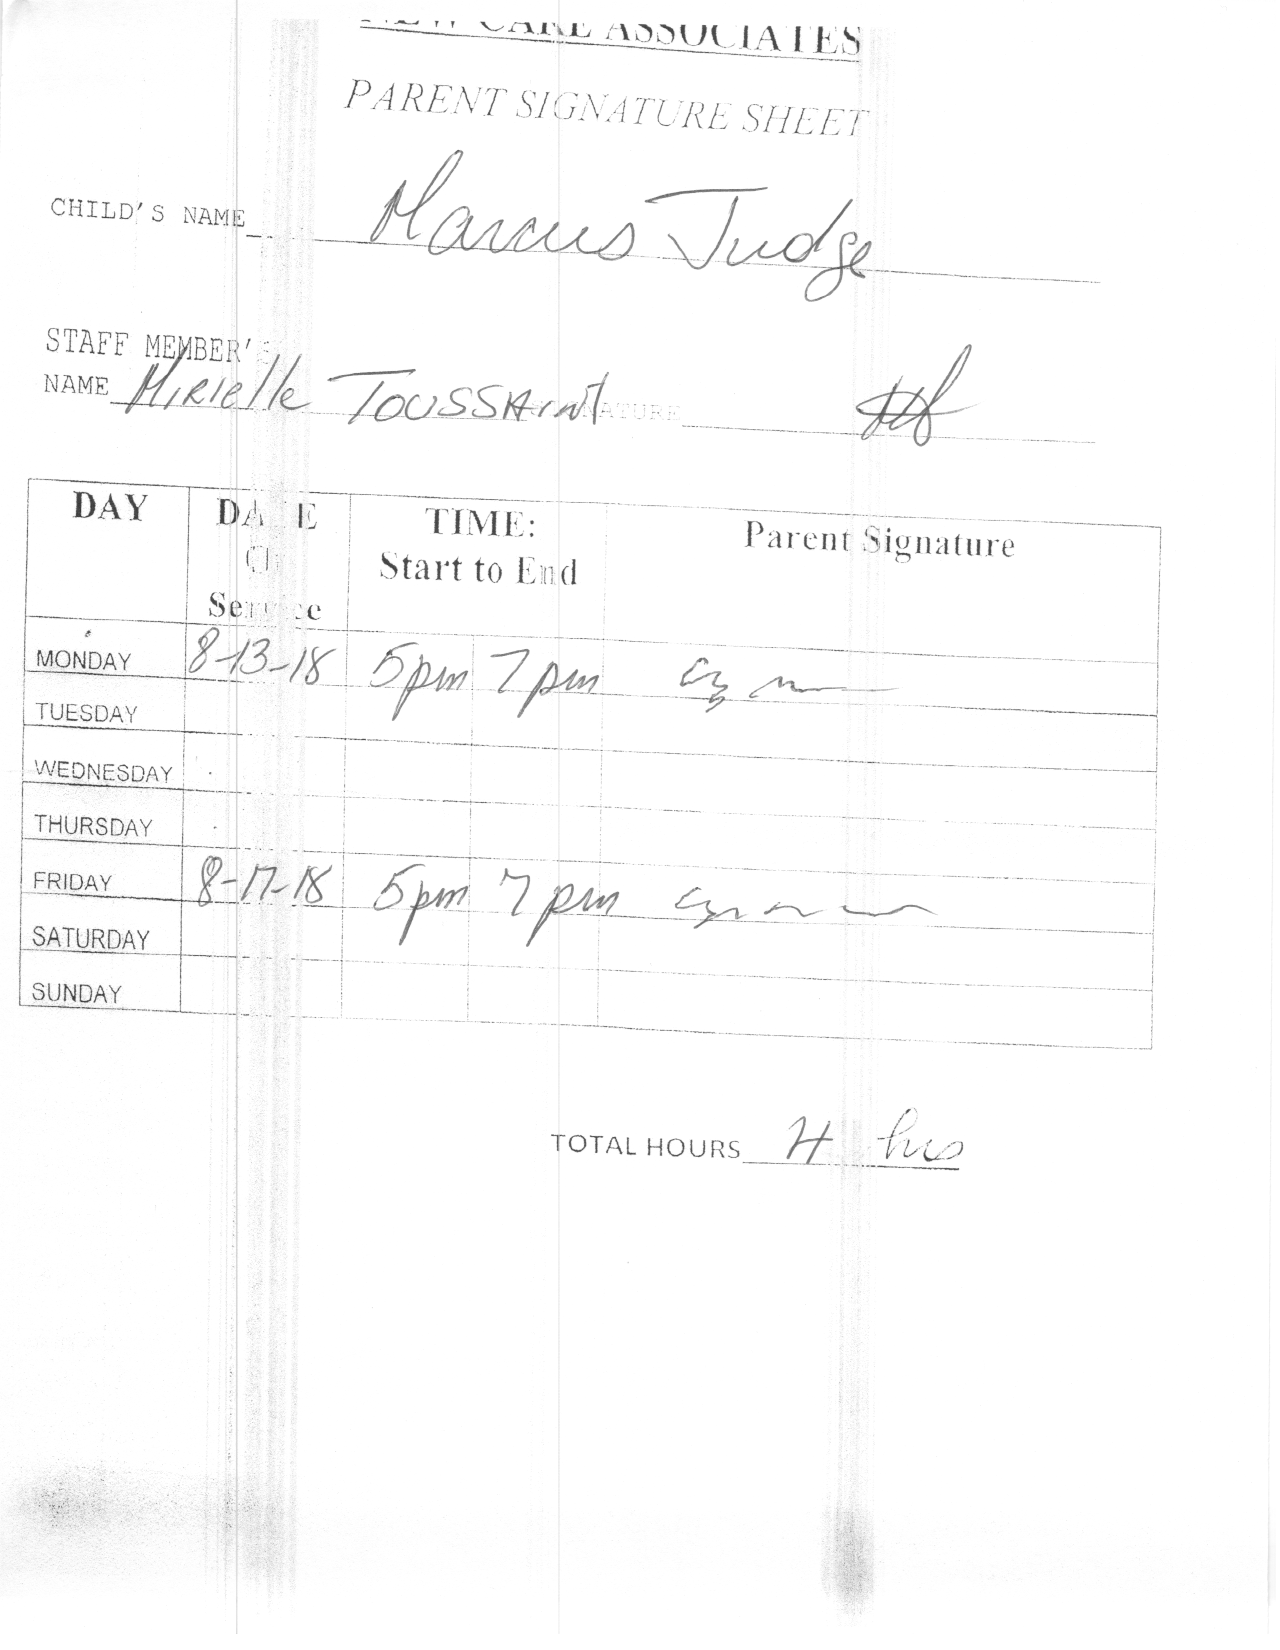 NEW CARE ASSOCIATES
PARENT SIGNATURE SHEET
CHILD'S NAME Marcus Judge
STAFF MEMBER'S
NAME Mirielle Toussaint SIGNATURE
DAY DATE Of Service TIME: Start to End Parent Signature
MONDAY 8-13-18 5pm 7pm
TUESDAY
WEDNESDAY
THURSDAY
FRIDAY 8-17-18 5pm 7pm
SATURDAY
SUNDAY
TOTAL HOURS 4 hrs